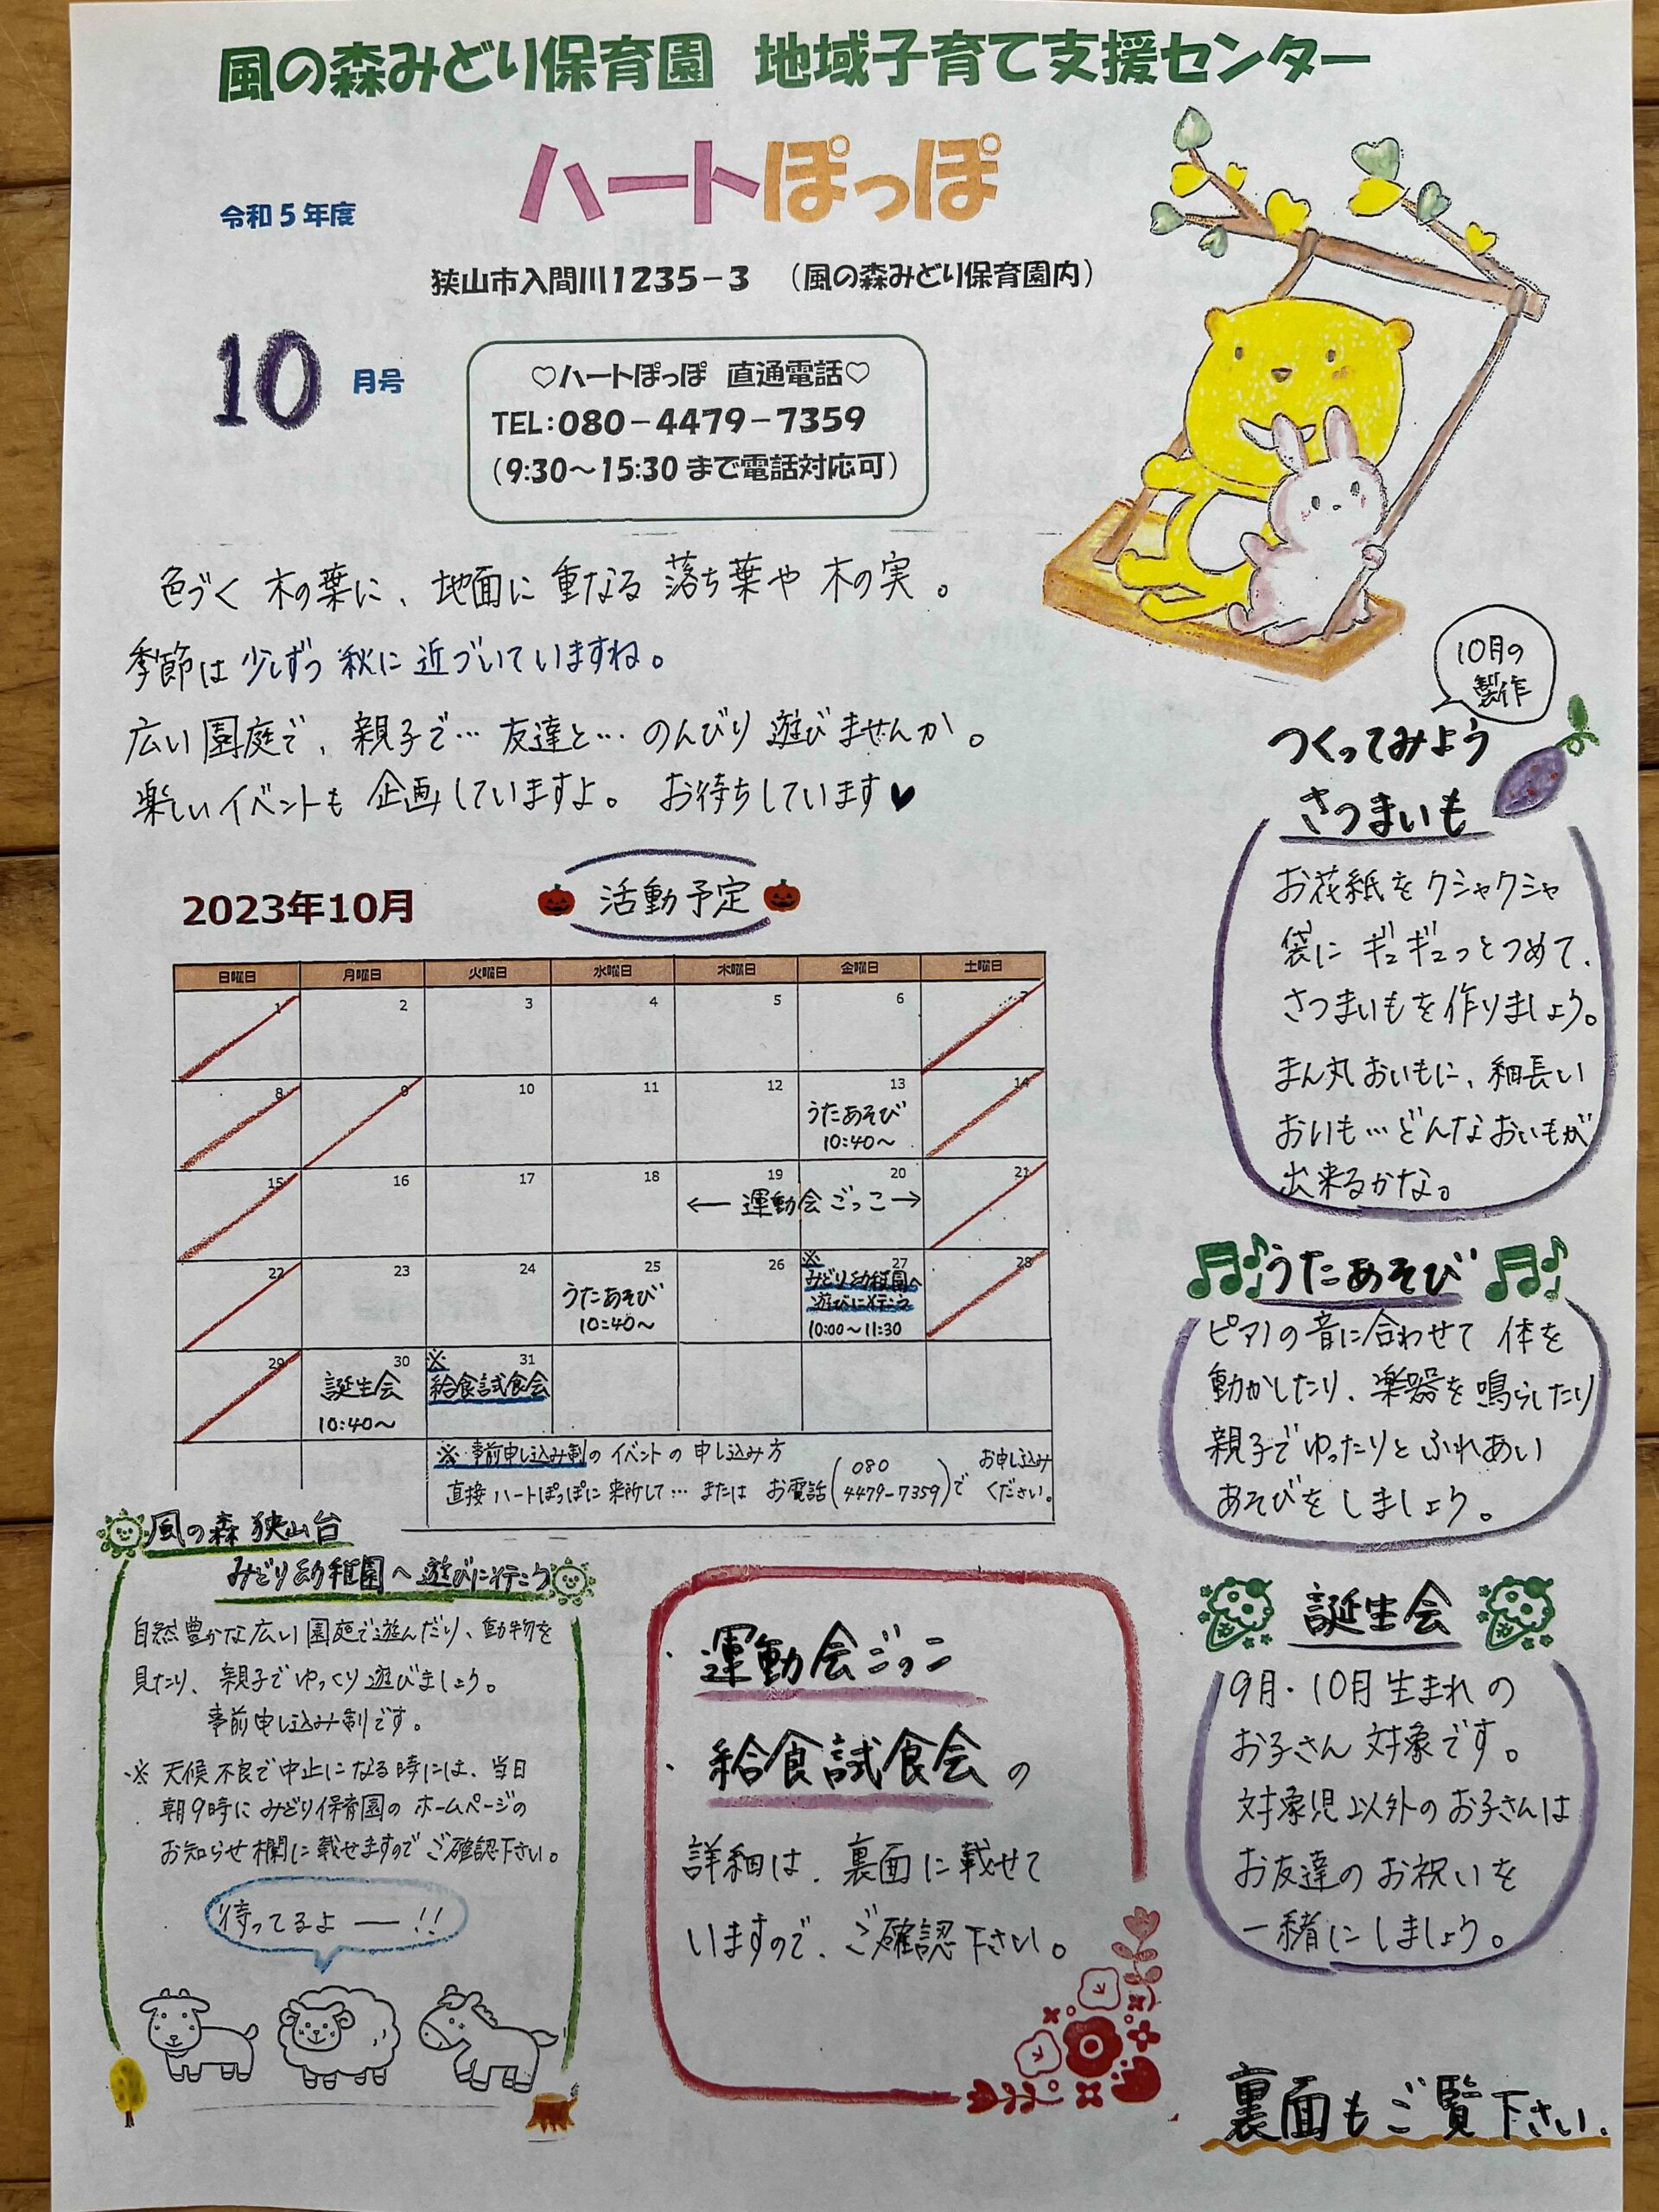 風の森みどり保育園 地域子育て支援センター
ハートぽっぽ
令和5年度
狭山市入間川1235-3 (風の森みどり保育園内)
10月号
♡ハートぽっぽ 直通電話♡
TEL:080-4479-7359
(9:30~15:30まで電話対応可)
色づく木の葉に、地面に重なる落ち葉や木の実。
季節は少しずつ秋に近づいていますね。
広い園庭で、親子で…友達と…のんびり遊びませんか。
楽しいイベントも企画していますよ。お待ちしています♥
10月の
製作
つくってみよう
さつまいも
お花紙をクシャクシャ
袋にギュギュっとつめて、
さつまいもを作りましょう。
まん丸おいもに、細長い
おいも…どんなおいもが
出来るかな。
2023年10月
活動予定
日曜日 月曜日 火曜日 水曜日 木曜日 金曜日 土曜日
1 2 3 4 5 6 7
8 9 10 11 12 13 14
うたあそび
10:40~
15 16 17 18 19 20 21
← 運動会ごっこ →
22 23 24 25 26 27 28
うたあそび
10:40~
※
みどり幼稚園へ
遊びに行こう
10:00~11:30
29 30 31
誕生会
10:40~
※
給食試食会
※事前申し込み制のイベントの申し込み方
直接ハートぽっぽに来所して…またはお電話(080 4479-7359)でお申し込みください。
♫♪うたあそび♫♪
ピアノの音に合わせて体を
動かしたり、楽器を鳴らしたり
親子でゆったりとふれあい
あそびをしましょう。
風の森 狭山台
みどり幼稚園へ遊びに行こう
自然豊かな広い園庭で遊んだり、動物を
見たり、親子でゆっくり遊びましょう。
事前申し込み制です。
※天候不良で中止になる時には、当日
朝9時にみどり保育園のホームページの
お知らせ欄に載せますのでご確認下さい。
待ってるよー!!
・運動会ごっこ
・給食試食会の
詳細は、裏面に載せて
いますので、ご確認下さい。
誕生会
9月・10月生まれの
お子さん対象です。
対象児以外のお子さんは
お友達のお祝いを
一緒にしましょう。
裏面もご覧下さい.